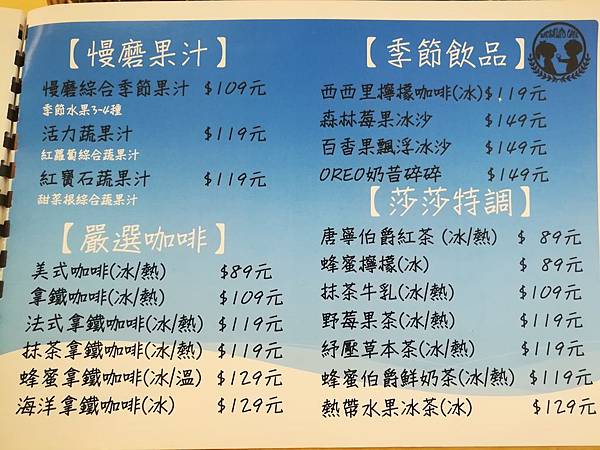 【慢磨果汁】
慢磨綜合季節果汁 $109元
季節水果3-4種
活力蔬果汁 $119元
紅蘿蔔綜合蔬果汁
紅寶石蔬果汁 $119元
甜菜根綜合蔬果汁
【嚴選咖啡】
美式咖啡(冰/熱) $89元
拿鐵咖啡(冰/熱) $109元
法式拿鐵咖啡(冰/熱) $119元
抹茶拿鐵咖啡(冰/熱) $119元
蜂蜜拿鐵咖啡(冰/溫) $129元
海洋拿鐵咖啡(冰) $129元
【季節飲品】
西西里檸檬咖啡(冰)$119元
森林莓果冰沙 $149元
百香果飄浮冰沙 $149元
OREO奶昔碎碎 $149元
【莎莎特調】
唐寧伯爵紅茶 (冰/熱) $ 89元
蜂蜜檸檬(冰) $ 89元
抹茶牛乳(冰/熱) $109元
野莓果茶(冰/熱) $119元
紓壓草本茶(冰/熱) $119元
蜂蜜伯爵鮮奶茶(冰/熱) $119元
熱帶水果冰茶(冰) $129元